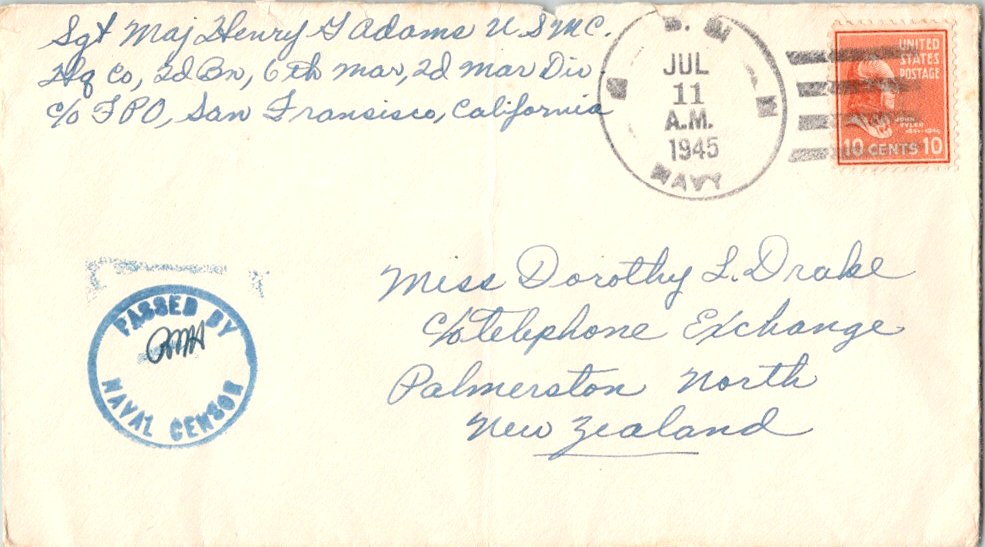 Sgt Maj Henry G Adams U.S.M.C.
Hq Co, 2d Bn, 6th Mar, 2d Mar Div
c/o FPO, San Fransisco, California
JUL
11
A.M.
1945
NAVY
UNITED
STATES
POSTAGE
JOHN
TYLER
1841-1845
10 CENTS 10
PASSED BY
NAVAL CENSOR
Miss Dorothy L. Drake
c/o telephone Exchange
Palmerston North
New Zealand